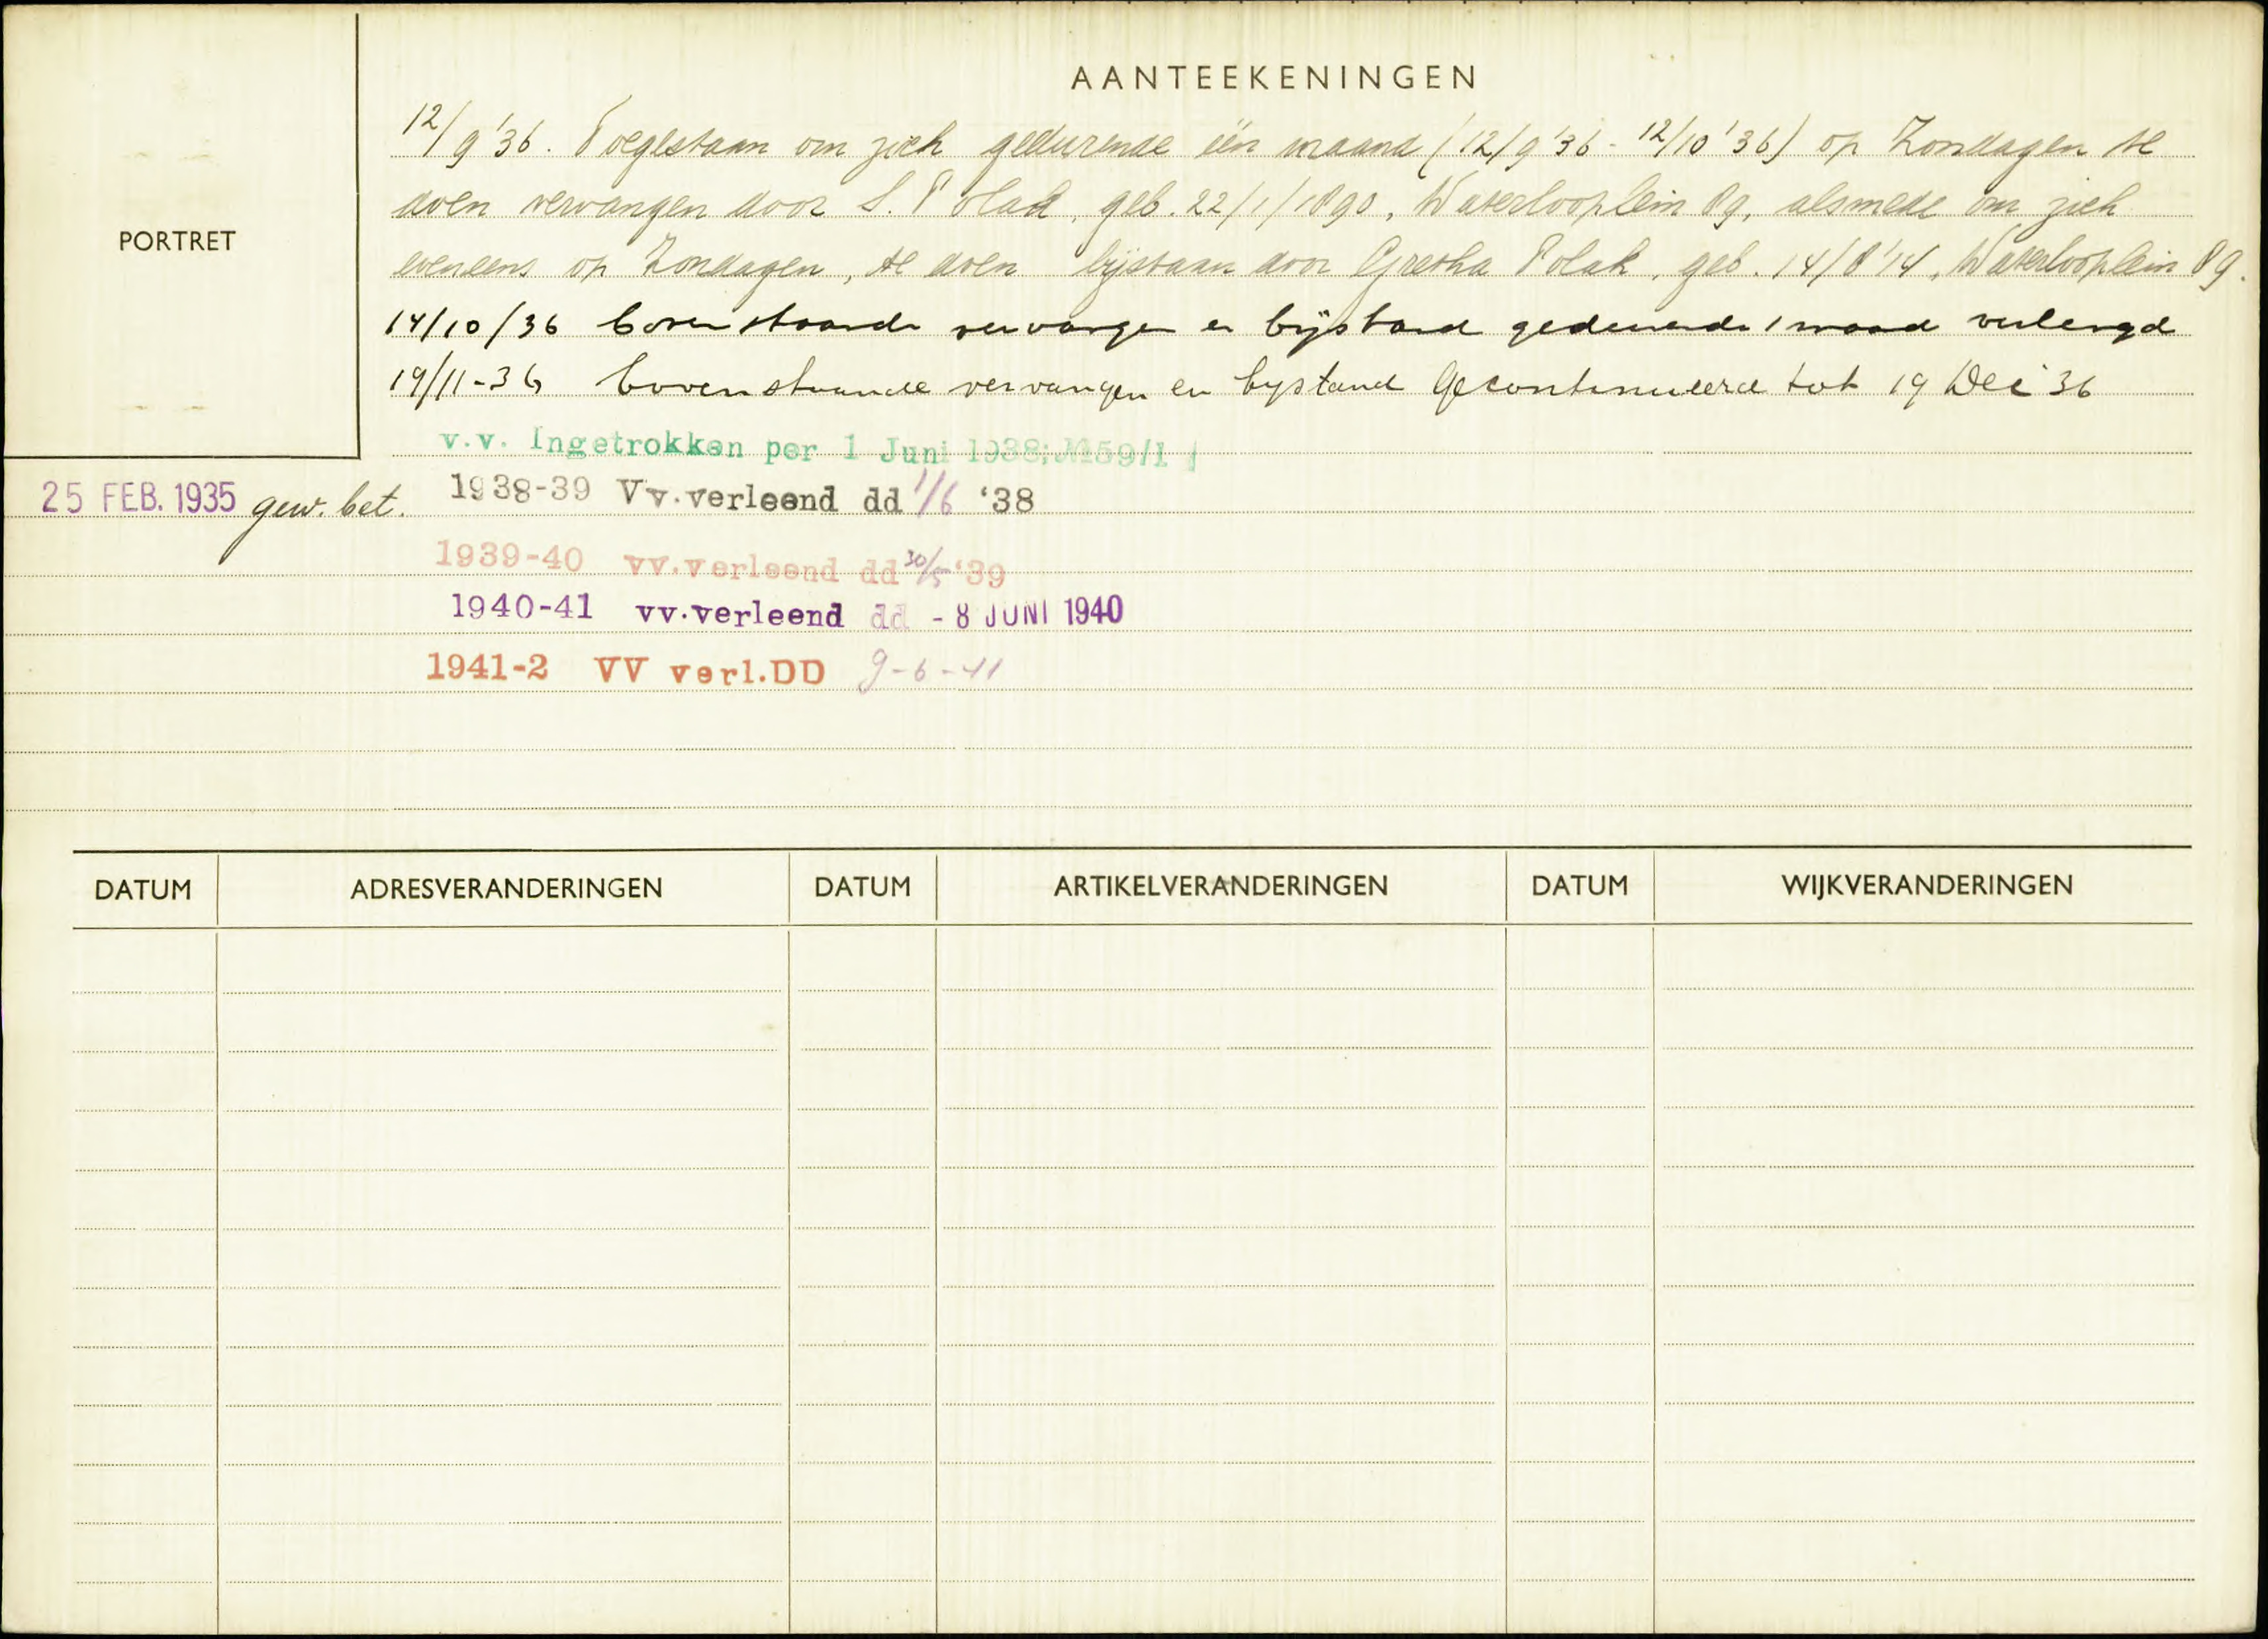 AANTEEKENINGEN
12/9'36. Toegestaan om zich gedurende één maand (12/9'36 - 12/10'36) op Zondagen te
doen vervangen door S. Polak, geb. 22/1/1890, Waterlooplein 89, alsmede om zich
eveneens op Zondagen, te doen bijstaan door Gretha Polak, geb. 14/8'14, Waterlooplein 89.
14/10/36 bovenstaande vervangen en bijstand gedurende 1 maand verlengd
19/11-36 bovenstaande vervangen en bystand gecontinueerd tot 19 Dec '36
PORTRET
v.v. Ingetrokken per 1 Juni 1938; №59/1
25 FEB. 1935 gew. bet.
1938-39 Vv.verleend dd 1/6 '38
1939-40 vv.verleend dd 30/5 '39
1940-41 vv.verleend dd - 8 JUNI 1940
1941-2 VV verl.DD 9-6-41
DATUM ADRESVERANDERINGEN DATUM ARTIKELVERANDERINGEN DATUM WIJKVERANDERINGEN